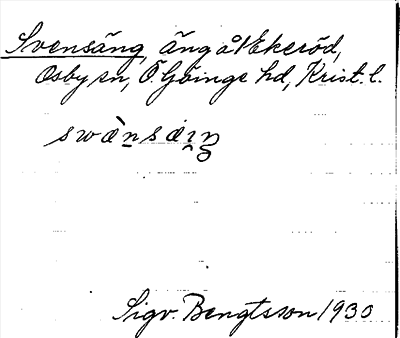 Svensäng, äng å Ekeröd,
Osby sn, Ö Göinge hd, Krist. l.
Sigv. Bengtsson 1930